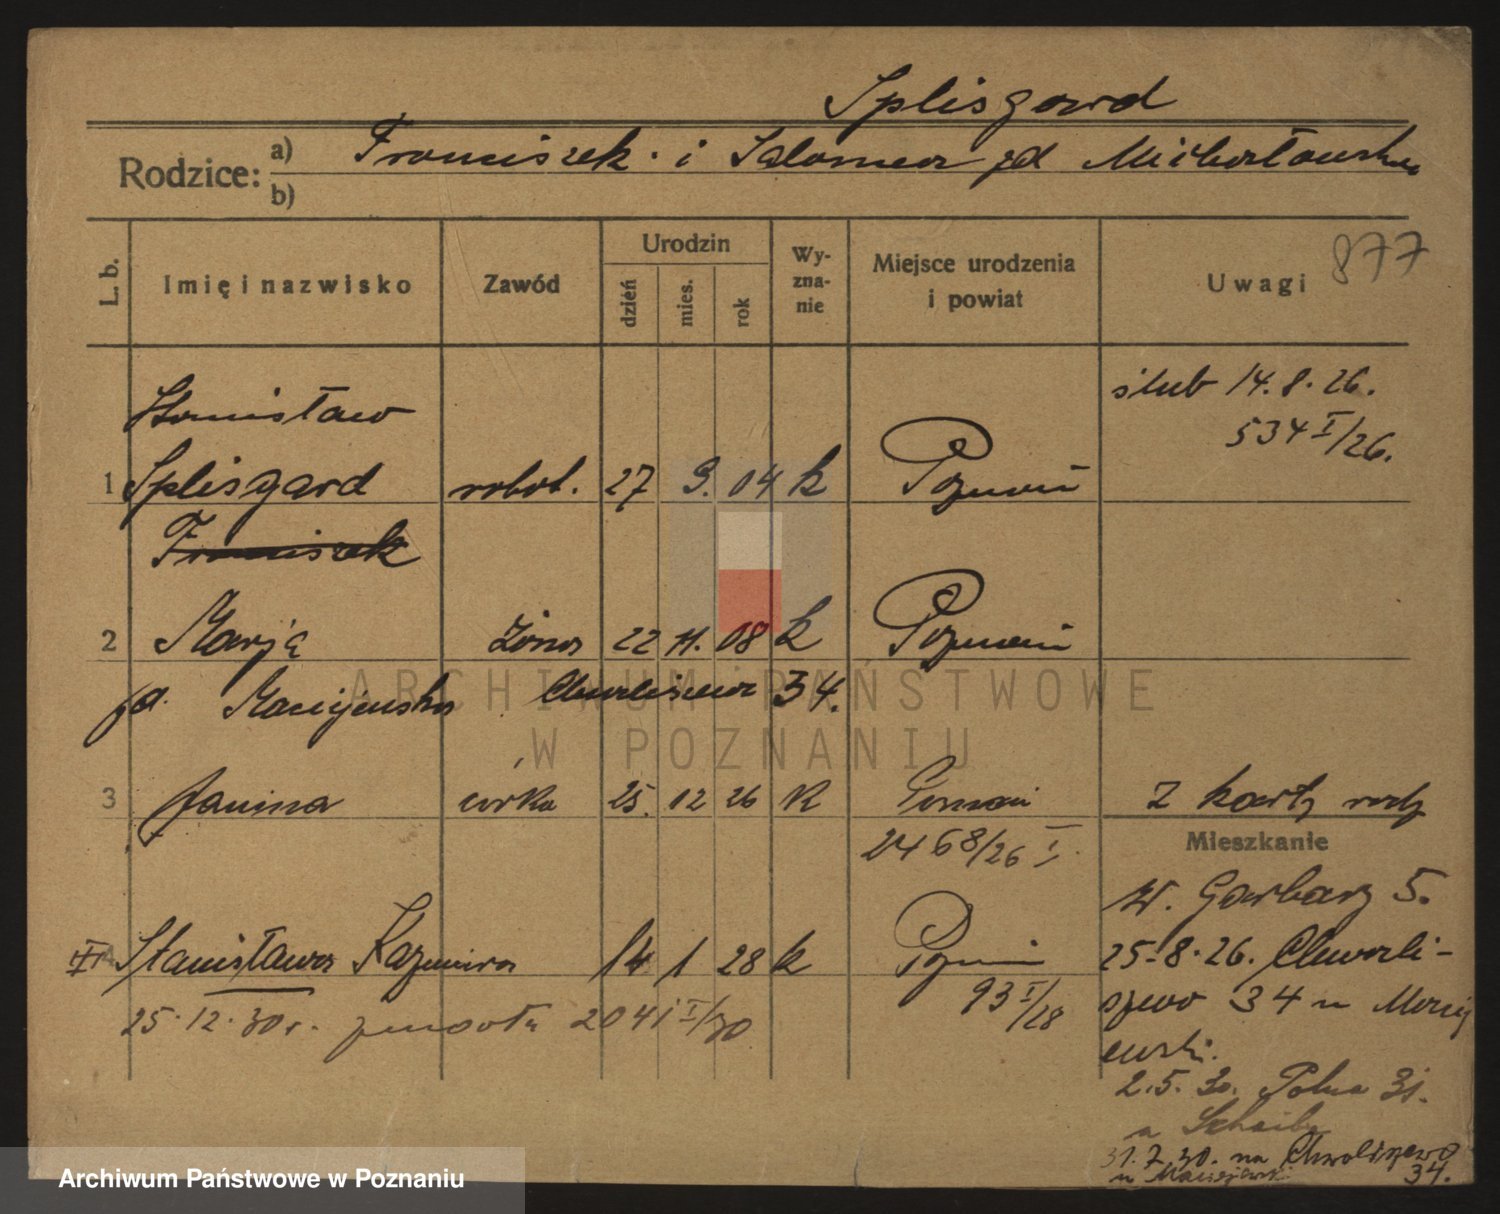 Splisgard
Rodzice: a) Franciszek i Salomea zd Michałowska
b)
877
L. b. Imię i nazwisko Zawód Urodzin dzień mies. rok Wyznanie Miejsce urodzenia i powiat Uwagi
ślub 14.8.26.
534 I/26.
Stanisław
1 Splisgard robot. 27 9. 04 k Poznań
Franciszek
2 Marja żona 22 11. 08 k Poznań
zd. Maciejewska Chwaliszewo 34.
3 Janina córka 25. 12 26 k Poznań z karty rodz
2468/26 I.
Mieszkanie
W. Garbary 5.
4 Stanisława Kazimiera 14 1 28 k Poznań
93 I/28
25.8.26. Chwali-
szewo 34 u Maciej
ewski.
25.12.30r. zmarła 2041 I/30
2.5.30. Polna 31.
u
31.7.30. na Chwaliszewo
34.
u Maciejewski
ARCHIWUM PAŃSTWOWE
W POZNANIU
Archiwum Państwowe w Poznaniu